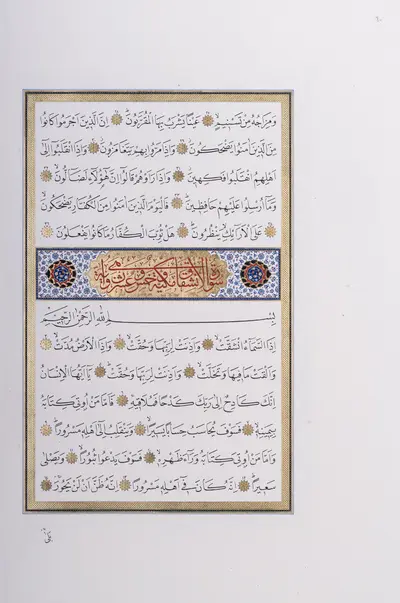 وَمِزَاجُهُ مِنْ تَسْنِيمٍ عَيْنًا يَشْرَبُ بِهَا الْمُقَرَّبُونَ اِنَّ الَّذِينَ اَجْرَمُوا كَانُوا
مِنَ الَّذِينَ اٰمَنُوا يَضْحَكُونَ وَاِذَا مَرُّوا بِهِمْ يَتَغَامَزُونَ وَاِذَا انْقَلَبُوا اِلٰى
اَهْلِهِمُ انْقَلَبُوا فَكِهِينَ وَاِذَا رَاَوْهُمْ قَالُوا اِنَّ هٰٓؤُلَاءِ لَضَالُّونَ
وَمَا اُرْسِلُوا عَلَيْهِمْ حَافِظِينَ فَالْيَوْمَ الَّذِينَ اٰمَنُوا مِنَ الْكُفَّارِ يَضْحَكُونَ
عَلَى الْاَرَائِكِ يَنْظُرُونَ هَلْ ثُوِّبَ الْكُفَّارُ مَا كَانُوا يَفْعَلُونَ
سورة الانشقاق مكية وهي خمس وعشرون آية
بِسْمِ اللهِ الرَّحْمٰنِ الرَّحِيمِ
اِذَا السَّمَاءُ انْشَقَّتْ وَاَذِنَتْ لِرَبِّهَا وَحُقَّتْ وَاِذَا الْاَرْضُ مُدَّتْ
وَاَلْقَتْ مَا فِيهَا وَتَخَلَّتْ وَاَذِنَتْ لِرَبِّهَا وَحُقَّتْ يَا اَيُّهَا الْاِنْسَانُ
اِنَّكَ كَادِحٌ اِلٰى رَبِّكَ كَدْحًا فَمُلَاقِيهِ فَاَمَّا مَنْ اُوتِيَ كِتَابَهُ
بِيَمِينِهِ فَسَوْفَ يُحَاسَبُ حِسَابًا يَسِيرًا وَيَنْقَلِبُ اِلٰى اَهْلِهِ مَسْرُورًا
وَاَمَّا مَنْ اُوتِيَ كِتَابَهُ وَرَاءَ ظَهْرِهِ فَسَوْفَ يَدْعُوا ثُبُورًا وَيَصْلٰى
سَعِيرًا اِنَّهُ كَانَ فِي اَهْلِهِ مَسْرُورًا اِنَّهُ ظَنَّ اَنْ لَنْ يَحُورَ
بَلٰى